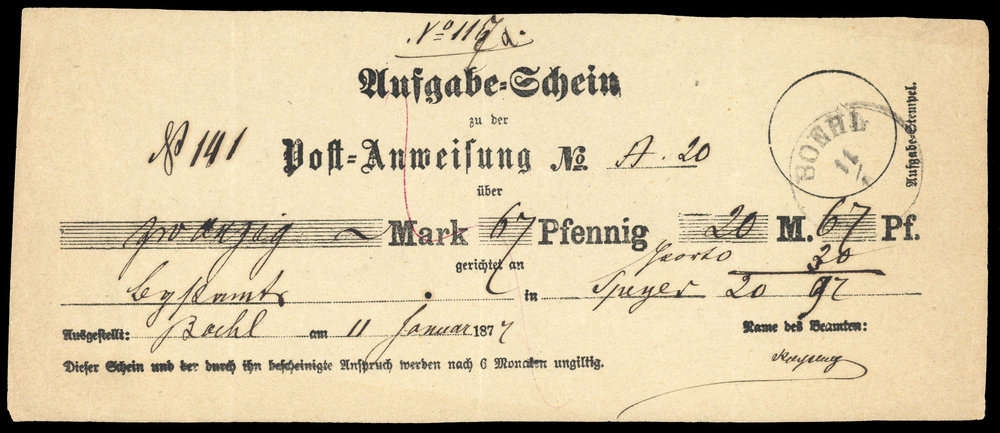 No 116 a.
Aufgabe-Schein
zu der
No 141
Post-Anweisung No. A. 20
über
zwanzig Mark 67 Pfennig 20 M. 67 Pf.
gerichtet an
Porto 30
in Speyer 20 97
Ausgestellt: Boehl am 11 Januar 1877
Name des Beamten:
Dieser Schein und der durch ihn bescheinigte Anspruch werden nach 6 Monaten ungiltig.
BOEHL
11
Aufgabe-Stempel.